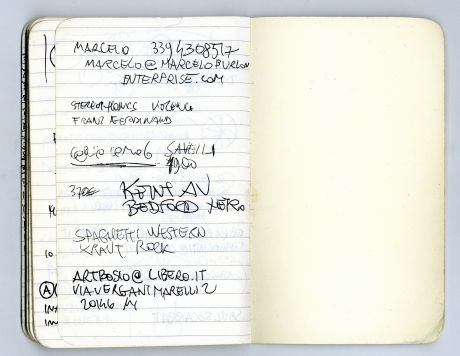 MARCELO 3394308517
MARCELO@MARCELOBURLON
ENTERPRISE.COM
STEREOPHONICS VIOLENCE
FRANZ FERDINAND
SAVELLI
19,00
370E KENT AV
BEDFORD METRO
SPAGHETTI WESTERN
KRAUT ROCK
ARTBOSIO@LIBERO.IT
VIA VERGANI MARELLI 2
20146 MI